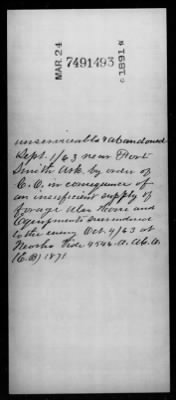 MAR. 24
7491493
1891
unserviceable & abandoned
Sept. 1/63 near Fort
Smith Ark. by order of
C.O. in consequence of
an insufficient supply of
forage Also Horse and
Equipments surrendered
to the enemy Oct. 4/63 at
Neosho Vide 4546. A.
(E.B) 1871